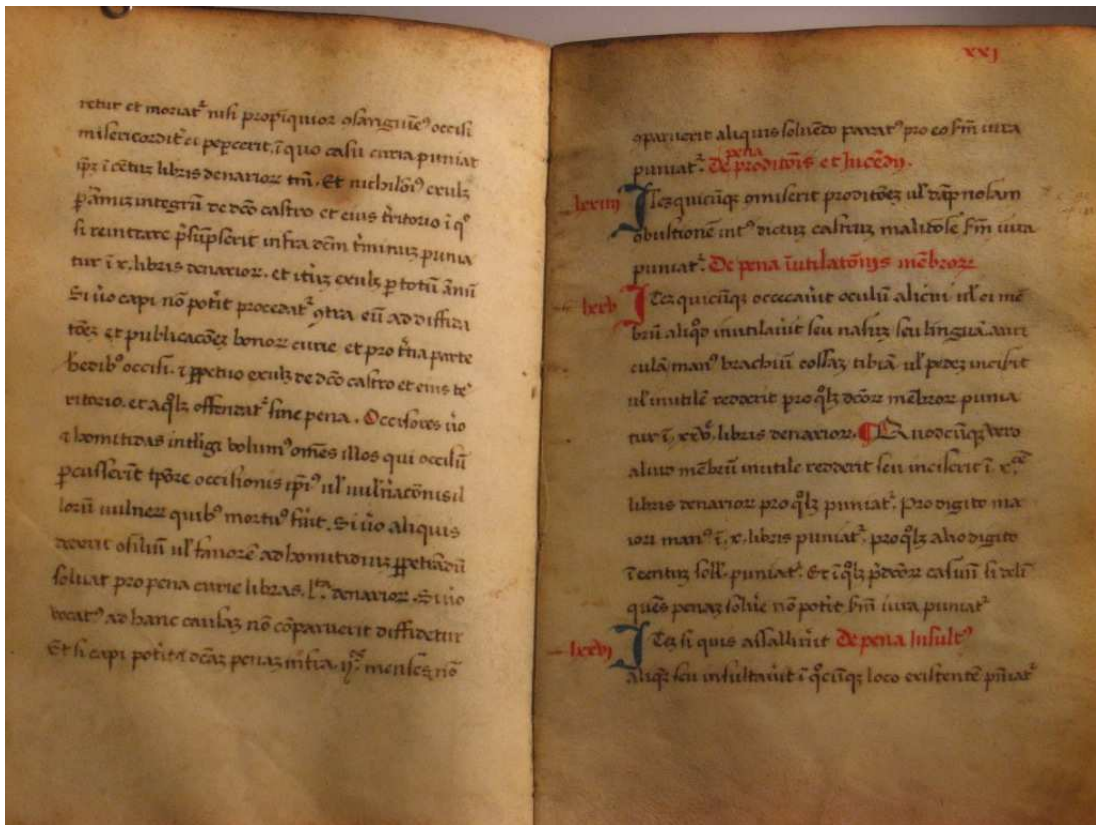 retur et moriat᷑ nisi propiquior ꝯsanguine᷑ occisi
misericordit᷑ ei pepcerit, ī quo casu curia puniat
ip̄z ī cētuz libris denarioꝝ tm̄. Et nichilōi᷑ exulz
p āmuz integrū de dc̄o castro et eius t̄ritorio ī qͦ
si reintrare p̄sūpserit infra dc̄m t̄minuz punia
tur ī x. libris denarioꝝ. et it̄uz exulz p totū ānū
Si ūo capi nō potit procedat᷑ ꝯtra eū ad diffida
tōez et publicacōez bonoꝝ curie et pro t̄na parte
hedibꝰ occisi. ⁊ ppetuo exulz de dc̄o castro et eius te
ritorio. et a qͦlz offendat᷑ sine pena. Occisores ūo
⁊ homicidas intligi volumꝰ om̄es illos qui occisū
pcusserīt tpōre occisionis ip̄iꝰ ul̓ vuln̄acōnis il
loꝝ vulneꝝ quibꝰ mortuꝰ fūit. Si ūo aliquis
dederit ꝯsiliū ul̓ fauorē ad homicidiuz ppetrādū
soluat pro pena curie libras. l.ᵗᵃ denarioꝝ. Si ūo
vocatꝰ ad hanc causaz nō cōparuerit diffidetur
Et si capi potit ⁊ dc̄az penaz infra. ij.ᵒˢ menses nō
xxj
ꝯparuerit aliquis soluēdo paratꝰ pro eo fm̄ iura
pena
puniat᷑. De proditōis et Incēdij.
lxxiiij Itez quicūqz ꝯmiserit proditōez ul̓
ꝯbustionē intꝰ dictuz castruz malitiose fm̄ iura
puniat᷑. De pena īutilatōnis mēbroꝝ
lxxv Itez quicūqz occecauit oculū alicui ul̓ ei mē
brū aliqͦd inutilauit seu nasuz seu linguā. auri
culā manꝰ brachiū cossaz tibiā ul̓ pedez inciserit
ul̓ inutile redderit pro qͦlz dc̄oꝝ mēbroꝝ punia
tur ī. xxv. libris denarioꝝ. ¶ Quodcūqz vero
aliud mēbrū inutile redderit seu inciserit ī. x.
libris denarioꝝ pro qͦlz puniat᷑. Pro digito ma
iori manꝰ ī. x. libris puniat᷑. pro qͦlz alio digito
ī centuz soll. puniat᷑. Et ī qͦlz p̄dc̄oꝝ casuū si deli
quēs penaz soluere nō potit fm̄ iura puniat᷑
lxxvj Itez si quis assalliuit De pena Insultꝰ
aliquē seu insultauit ī qͦcūqz loco existentē puniat᷑